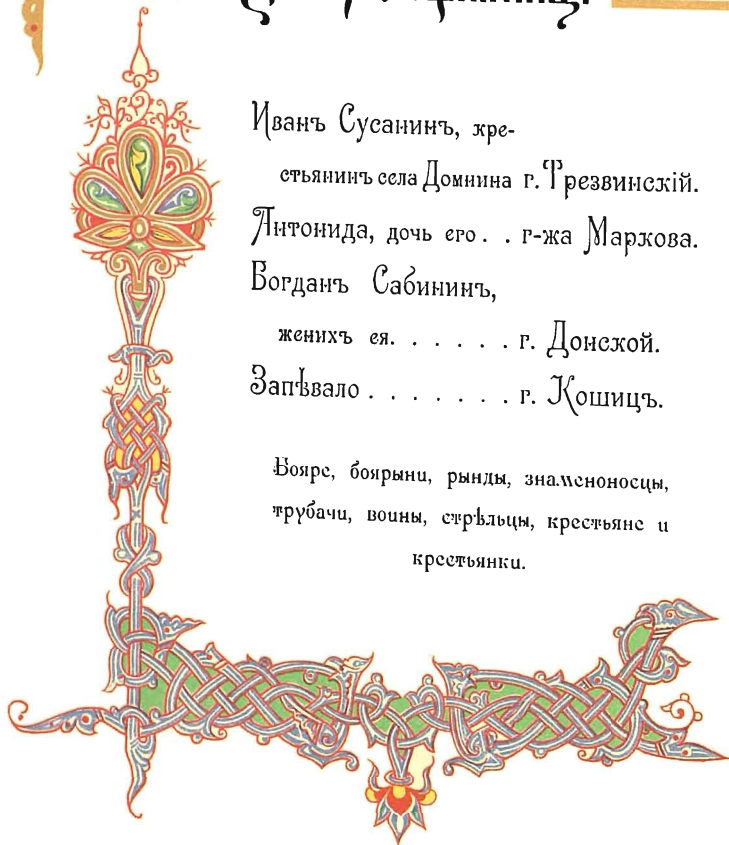 Иванъ Сусанинъ, кре-
стьянинъ села Домнина г. Трезвинскій.
Антонида, дочь его . . г-жа Маркова.
Богданъ Сабининъ,
женихъ ея. . . . . . . г. Донской.
Запѣвало . . . . . . . . г. Кошицъ.
Бояре, боярыни, рынды, знаменоносцы,
трубачи, воины, стрѣльцы, крестьяне и
крестьянки.